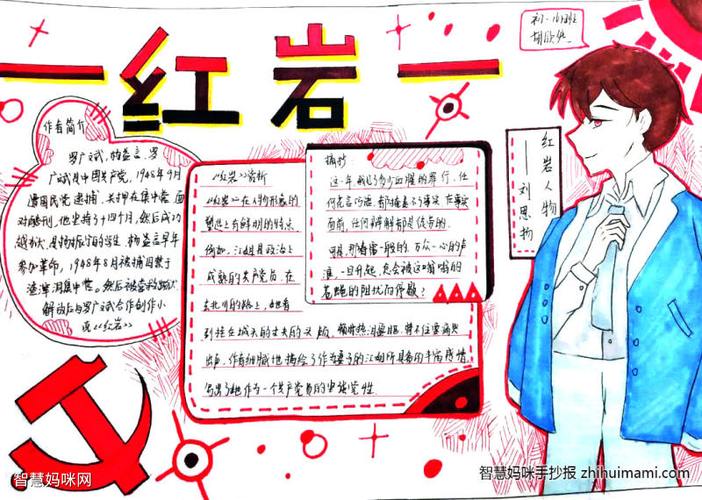 红岩
初一(6)班
作者简介
罗广斌, 杨益言, 罗
广斌是中国共产党, 1948年9月
遭国民党逮捕, 关押在集中营. 面
对酷刑, 他坚持了十四个月, 然后成功
越狱,
杨益言早年
参加革命, 1948年8月被捕囚禁于
渣滓洞集中营. 然后被
解放后与罗广斌合作创作小
说《红岩》
《红岩》赏析
《红岩》在人物形象的
塑造上有鲜明的特点.
例如, 江姐是政治上
成熟的共产党员, 在
去北川的路上, 她看
到挂在城头的丈夫的头颅,
出声. 作者细腻地描绘了作为妻子的江姐所具备的丰富感情
写出了她作为一个共产党员的坚强党性.
摘抄:
这一年 我见了多少血腥的罪行, 任
何花言巧语, 都掩盖不了事实 在事实
面前, 任何辩解都是徒劳的.
可是, 那海啸一般的 万众一心的声
浪, 一旦升起, 怎会被这嗡嗡的
苍蝇的阻扰而停歇?
红岩人物
——刘思扬
智慧妈咪网
智慧妈咪手抄报 zhihuimami.com